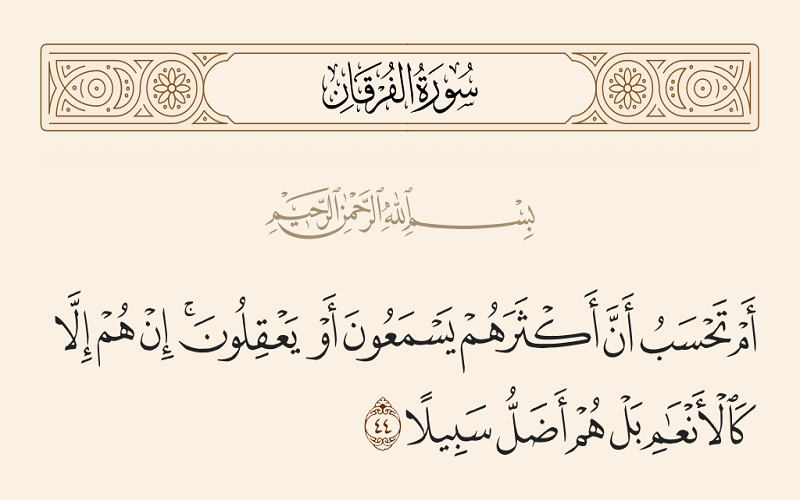 سُورَةُ الفُرْقَانِ
بِسْمِ ٱللَّهِ ٱلرَّحْمَٰنِ ٱلرَّحِيمِ
أَمْ تَحْسَبُ أَنَّ أَكْثَرَهُمْ يَسْمَعُونَ أَوْ يَعْقِلُونَ ۚ إِنْ هُمْ إِلَّا
كَٱلْأَنْعَٰمِ بَلْ هُمْ أَضَلُّ سَبِيلًا ٤٤